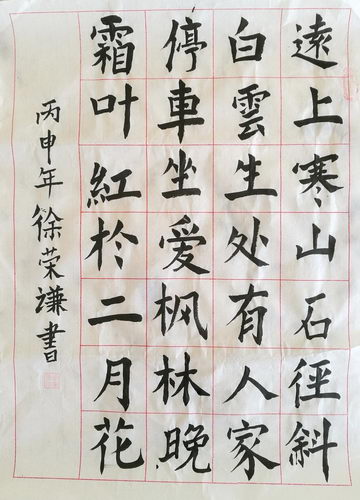 遠上寒山石径斜
白雲生处有人家
停車坐爱枫林晚
霜叶紅於二月花
丙申年徐荣谦書